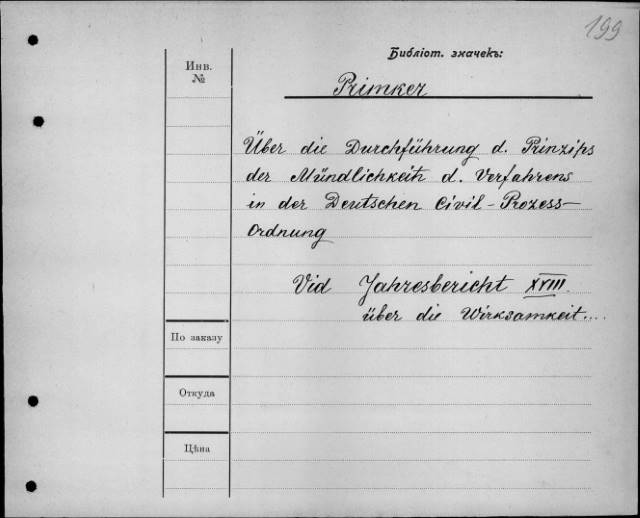 199
Библіот. значекъ:
Инв.
№
Primker
Über die Durchführung d. Prinzips
der Mündlichkeit d. Verfahrens
in der Deutschen Civil-Prozess-
Ordnung
Vid Jahresbericht XVIII.
über die Wirksamkeit....
По заказу
Откуда
Цѣна